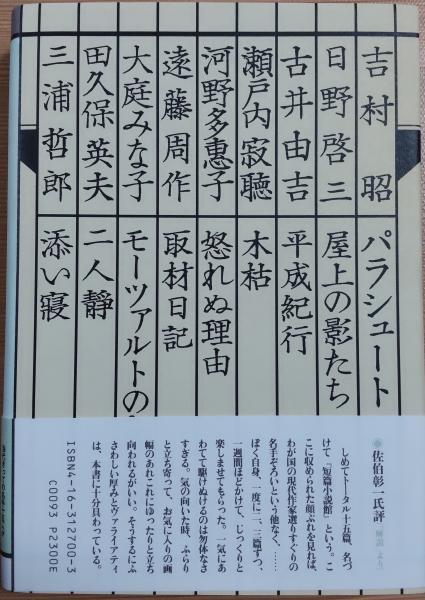 吉村 昭 パラシュート
日野啓三 屋上の影たち
古井由吉 平成紀行
瀬戸内寂聴 木枯
河野多惠子 怒れぬ理由
遠藤周作 取材日記
大庭みな子 モーツァルトの
田久保英夫 二人静
三浦哲郎 添い寝
佐伯彰一氏評 解説より
しめてトータル十五篇、名づ
けて『短篇小説館』という。こ
こに収められた顔ぶれを見れば、
わが国の現代作家選りすぐりの
名手ぞろいという他なく、……
ぼく自身、一度に二、三篇ずつ、
一週間ほどかけて、じっくりと
楽しませてもらった。一気にあ
わてて駆けぬけるのは勿体なさ
すぎる。気の向いた時、ふらり
と立ち寄って、お気に入りの画
幅のあれこれにゆったりと立ち
向われるがいい。そうするにふ
さわしい厚みとヴァライアティ
は、本書に十分具わっている。
ISBN4-16-312700-3
C0093 P2300E